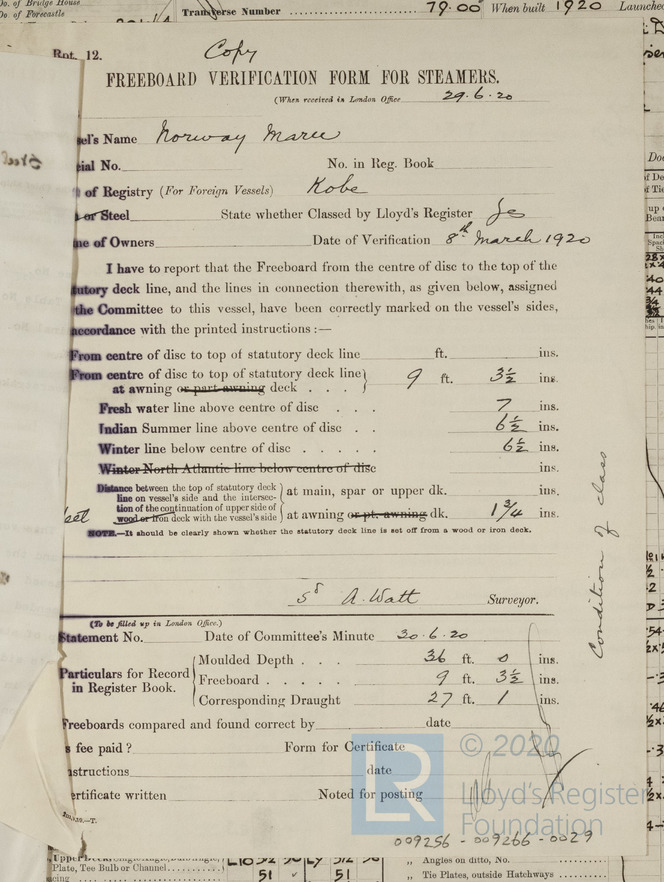 o. of Bridge House
o. of Forecastle
Transverse Number 79.00 When built 1920 Launched
Rpt. 12. Copy
FREEBOARD VERIFICATION FORM FOR STEAMERS.
(When received in London Office 29.6.20
sel's Name Norway Maru
cial No. No. in Reg. Book
of Registry (For Foreign Vessels) Kobe
or Steel State whether Classed by Lloyd's Register Yes
me of Owners Date of Verification 8th March 1920
I have to report that the Freeboard from the centre of disc to the top of the
tutory deck line, and the lines in connection therewith, as given below, assigned
the Committee to this vessel, have been correctly marked on the vessel's sides,
accordance with the printed instructions :—
From centre of disc to top of statutory deck line ft. ins.
From centre of disc to top of statutory deck line
at awning or part awning deck . . . 9 ft. 3½ ins.
Fresh water line above centre of disc . . . 7 ins.
Indian Summer line above centre of disc . . 6½ ins.
Winter line below centre of disc . . . . . 6½ ins.
Winter North Atlantic line below centre of disc ins.
Distance between the top of statutory deck
line on vessel's side and the intersec-
tion of the continuation of upper side of
wood or iron deck with the vessel's side
at main, spar or upper dk. ins.
at awning or pt. awning dk. 1¾ ins.
NOTE.—It should be clearly shown whether the statutory deck line is set off from a wood or iron deck.
Condition of class
Sd A. Watt Surveyor.
(To be filled up in London Office.)
Statement No. Date of Committee's Minute 30.6.20
Particulars for Record
in Register Book.
Moulded Depth . . . 36 ft. 0 ins.
Freeboard . . . . . 9 ft. 3½ ins.
Corresponding Draught 27 ft. 1 ins.
Freeboards compared and found correct by date
s fee paid ? Form for Certificate
structions date
ertificate written Noted for posting
© 2020
LR
Lloyd's Register
Foundation
009256 - 009266 - 0029
Upper Deck
Plate, Tee Bulb or Channel
51 51
„ Angles on ditto, No.
„ Tie Plates, outside Hatchways